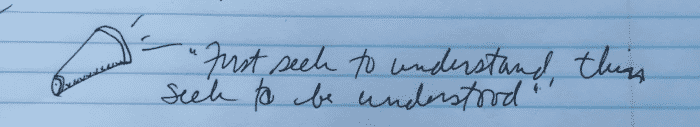 "First seek to understand, then
seek to be understood"